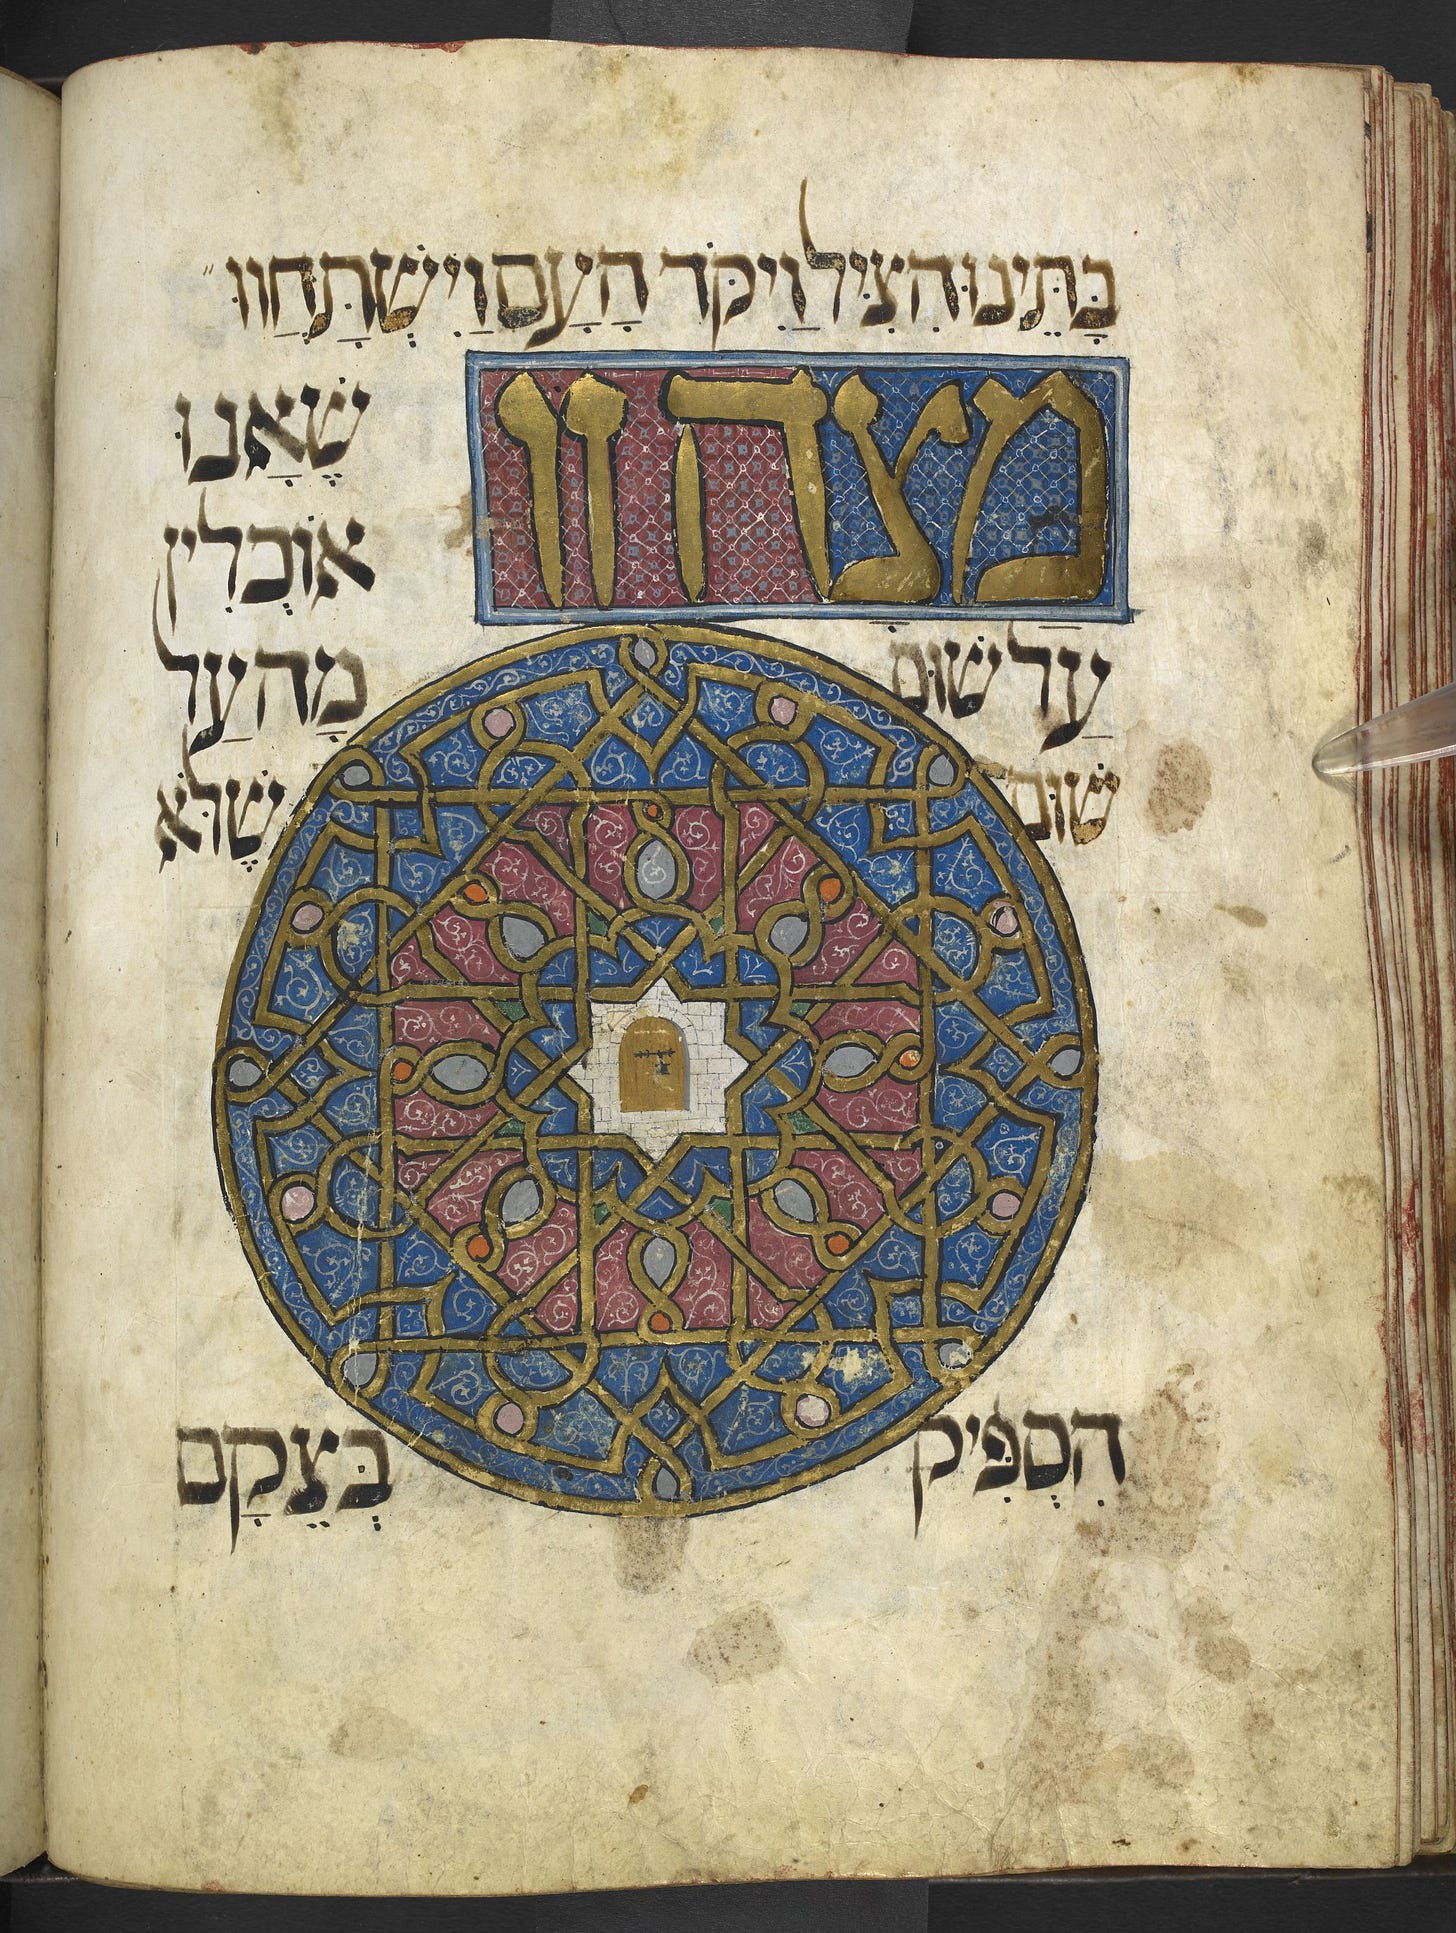 בָּתֵּינוּ הִצִּיל וַיִּקֹּד הַעַם וַיִּשְׁתַּחַווּ
מצה זו שֶׁאַנוּ
אוֹכְלִין
עַל שׁוּם מַה עַל
שׁוּם שֶׁלֹּא
הִסְפִּיק בְּצֵקַם